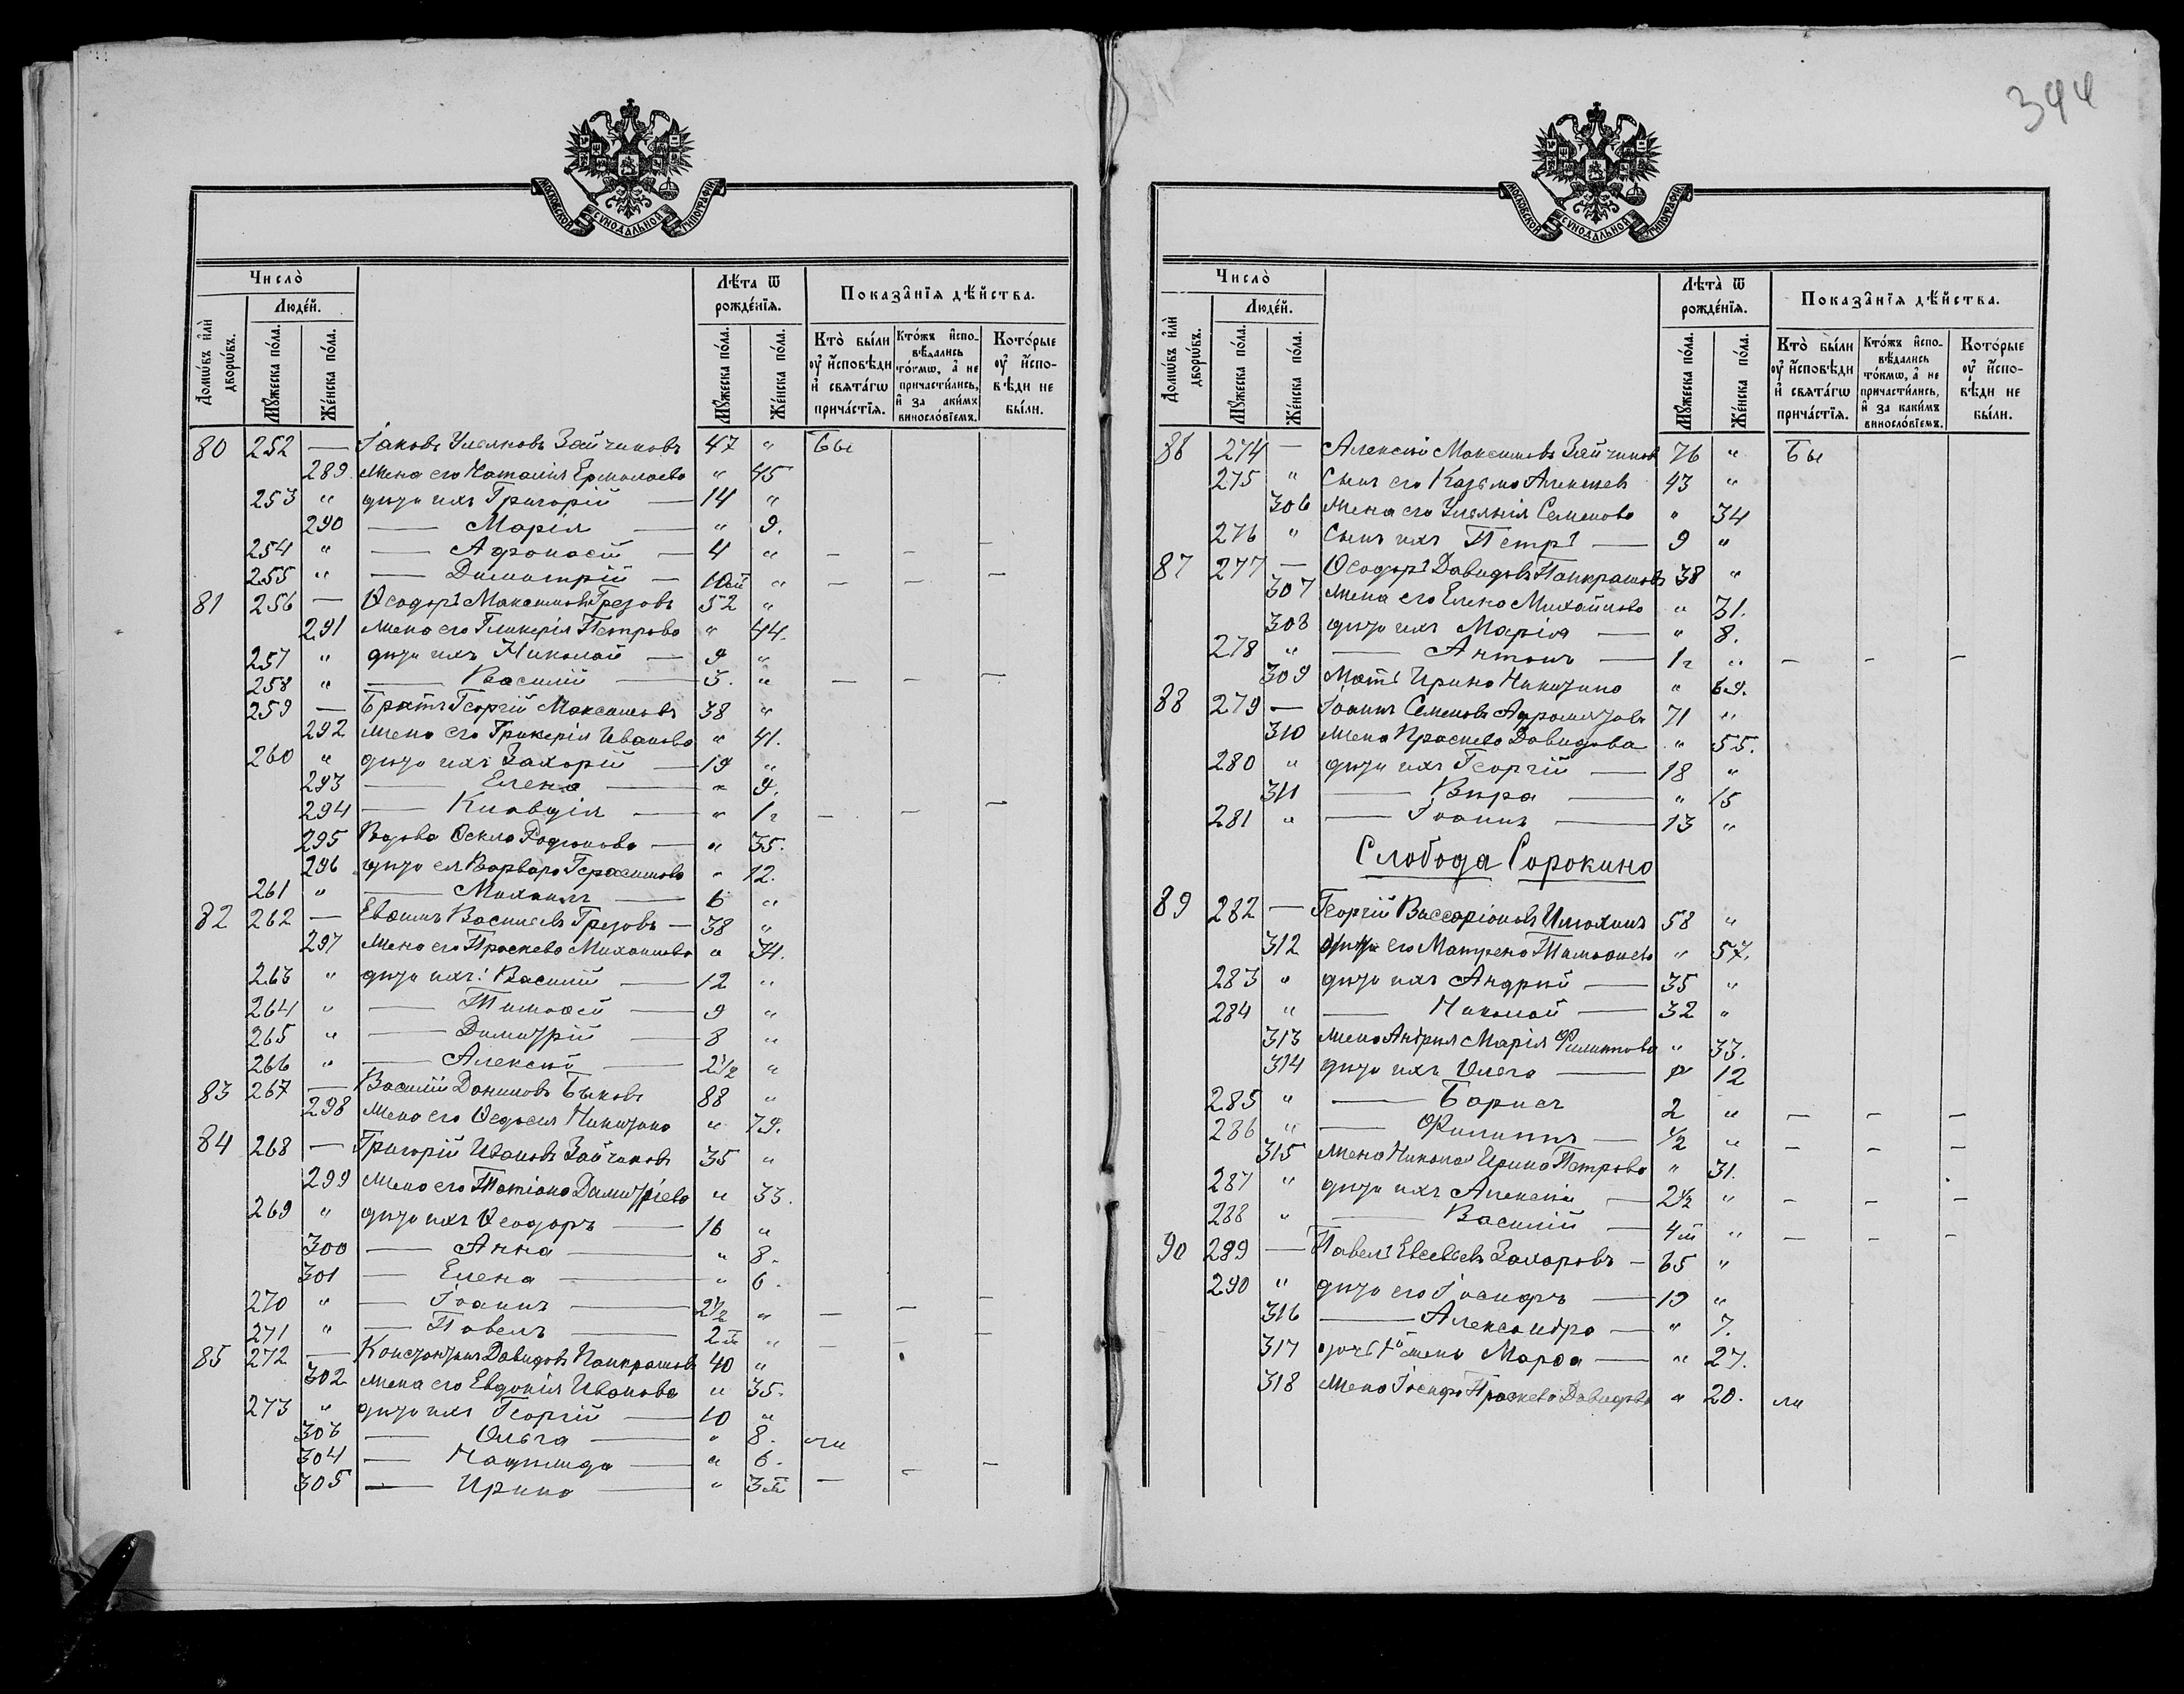 МОСКОВСКОЙ СѴНОДАЛЬНОЙ ТИПОГРАФІИ
Число̀
Домѡвъ и҆лѝ дворѡвъ.
Людéй.
Мꙋ́жеска по́ла.
Же́нска по́ла.
Лѣ́та ѿ рожде́нїѧ.
Мꙋ́жеска по́ла.
Же́нска по́ла.
Показа̑нїѧ дѣ́йства.
Кто̀ бы́ли оу҆ и҆сповѣди и҆ свѧта́гѡ прича́стїѧ.
Кто́жъ и҆спо-вѣ́дались то́кмѡ, а҆ не причасти́лись, и҆ за каки́мъ винослове́емъ.
Кото́рые оу҆ и҆спо-вѣди не бы́ли.
80 252 — Іаковъ Ульяновъ Зайчиковъ 47 " Бы
289. Жена его Наталія Ермолаева " 45
253 " дѣти ихъ Григорій — 14 "
290 — Марія — " 9.
254 " — Афанасій — 4 " — — —
255 " — Димитрій — 10м " — — —
81 256 — Ѳеодоръ Максимовъ Грезовъ 52 "
291 Жена его Гликерія Петрова " 44.
257 " дѣти ихъ Николай — 9 "
258 " — Василій — 5. " — — —
259 — Братъ Георгій Максимовъ 38 "
292 Жена его Гликерія Иванова " 41.
260 " дѣти ихъ Захарій — 19 "
293 — Елена — " 9.
294 — Клавдія — " 1г — — —
295 Вдова Ѳекла Родионова — " 35.
296 дѣти ея Варвара Герасимова " 12.
261 " — Михаилъ — 6 "
82 262 — Евѳимъ Васильевъ Грезовъ — 38 "
297 Жена его Праскева Михаилова " 34.
263 " дѣти ихъ: Василій — 12 "
264 " — Тимоѳей — 9 "
265 " — Димитрій — 8 "
266 " — Алексій — 2½ "
83 267 — Василій Даниловъ Быковъ 88 "
298 Жена его Ѳедосія Никитина " 79.
84 268 — Григорій Ивановъ Зайчиковъ 35 "
299 Жена его Татіана Димитріева " 33.
269 " дѣти ихъ Ѳеодоръ — 16 "
300 — Анна — " 8.
301 — Елена — " 6.
270 " — Іоаннъ — 2½ " — — —
271 " — Павелъ — 2м " — — —
85 272 — Константинъ Давидовъ Панкратовъ 40 "
302 Жена его Евдокія Иванова " 35.
273 " дѣти ихъ Георгій — 10 "
303 — Ольга — " 8. ли
304 — Надежда — " 6.
305 — Ирина — " 3м — — —
344
МОСКОВСКОЙ СѴНОДАЛЬНОЙ ТИПОГРАФІИ
Число̀
Домѡвъ и҆лѝ дворѡвъ.
Людéй.
Мꙋ́жеска по́ла.
Же́нска по́ла.
Лѣта̀ ѿ рожде́нїѧ.
Мꙋ́жеска по́ла.
Же́нска по́ла.
Показа̑нїѧ дѣ́йства.
Кто̀ бы́ли оу҆ и҆сповѣди и҆ свѧта́гѡ прича́стїѧ.
Кто́жъ и҆спо-вѣ́дались то́кмѡ, а҆ не причасти́лись, и҆ за каки́мъ винослове́емъ.
Кото́рые оу҆ и҆спо-вѣди не бы́ли.
86 274 — Алексій Максимовъ Зайчиковъ 76 " Бы
275 " Сынъ его Казьма Алексеевъ 43 "
306 Жена его Ульянія Семенова " 34
276 " Сынъ ихъ Петръ — 9 "
87 277 — Ѳеодоръ Давидовъ Панкратовъ 38 "
307 Жена его Елена Михайлова " 31.
308 дѣти ихъ Марія — " 8.
278 " — Антонъ — 1г " — — —
309 Мать Ирина Никитина " 69.
88 279 — Іоаннъ Семеновъ 71 "
310 Жена Праскева Давидова " 55.
280 " дѣти ихъ Георгій — 18 "
311 — Вѣра — " 15
281 " — Іоаннъ — 13 "
Слобода Сорокина
89 282 — Георгій Виссаріоновъ Илюхинъ 58 "
312 его Матрена Тимоѳеева " 57.
283 " дѣти ихъ Андрей — 35 "
284 " — Николай — 32 "
313 Жена Андрея Марія Филиппова " 33.
314 дѣти ихъ Ольга — " 12
285 " — Борисъ 2 " — — —
286 " — Филиппъ — ½ " — — —
315 Жена Николая Ирина Петрова " 31.
287 " дѣти ихъ Алексій — 2½ " — — —
288 " — Василій — 4м " — — —
90 289 — Павелъ Евсевьевъ Захаровъ — 65 "
290 " дѣти его Іосифъ — 19 "
316 — Александра — " 7.
317 дочь Марѳа — " 27.
318 Жена Іосифа Праскева Давидова " 20. ли